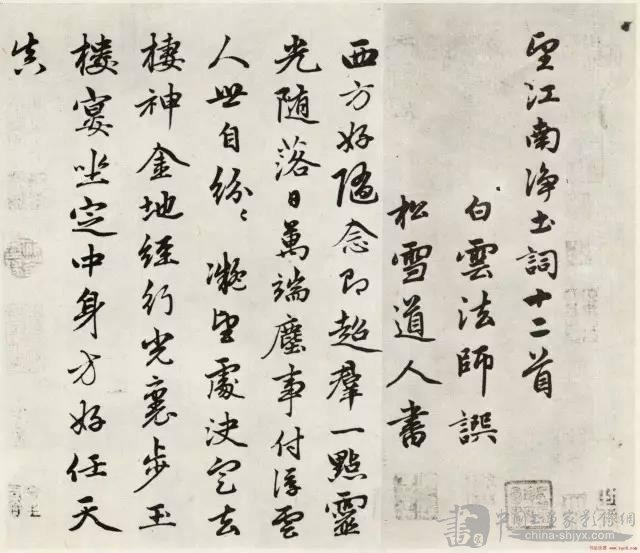 望江南净土詞十二首
白雲法師譔
松雪道人書
西方好隨念即超羣一點靈
光随落日萬端塵事付浮雲
人世自紛〻凝望處決定去
棲神金地經行光裏步玉
樓宴坐定中身方好任天
真
中國書畫家影像網
china-shjyx.com